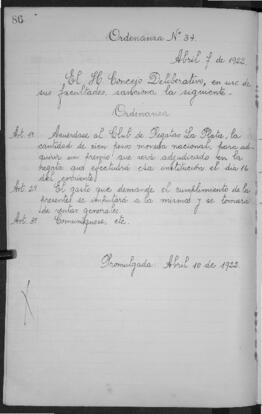 86
Ordenanza Nº 34.
Abril 7 de 1922.
El H. Concejo Deliberativo, en uso de
sus facultades, sanciona la siguiente.
Ordenanza
Art. 1º Acuérdase al Club de Regatas La Plata, la
cantidad de cien pesos moneda nacional, para ad-
quirir un premio que será adjudicado en la
regata que efectuará esa institución el día 16
del corriente.
Art. 2º El gasto que demande el cumplimiento de la
presente se imputará a la misma y se tomará
de rentas generales.
Art. 3º Comuníquese, etc.
Promulgada: Abril 10 de 1922.